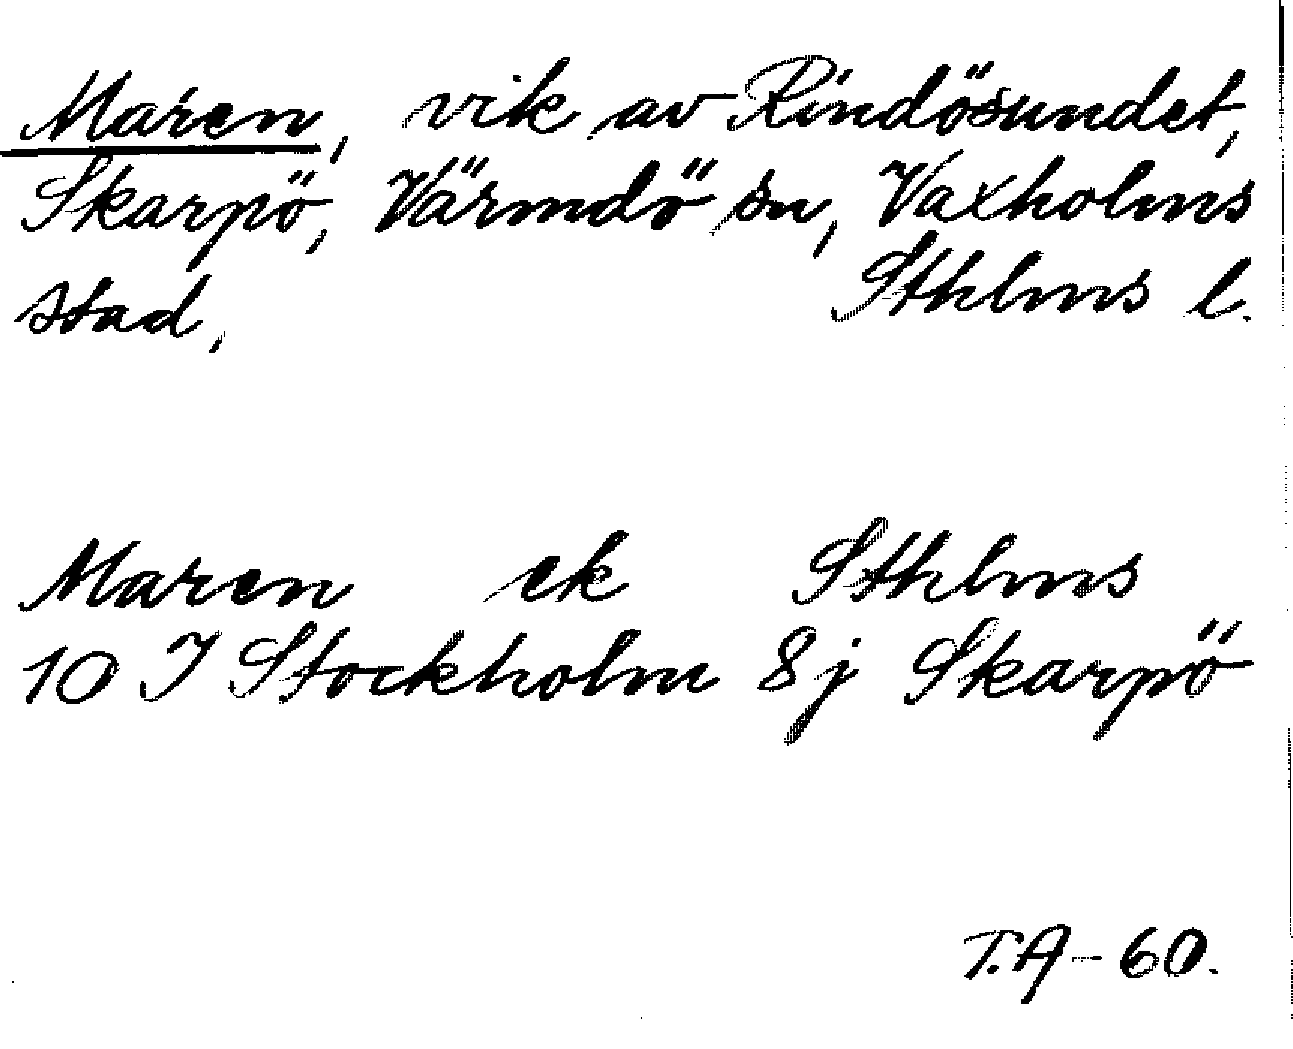 Maren, vik av Rindösundet,
Skarpö, Värmdö sn, Vaxholms
stad, Sthlms l.
Maren ek Sthlms
10 I Stockholm 8j Skarpö
T.A-60.